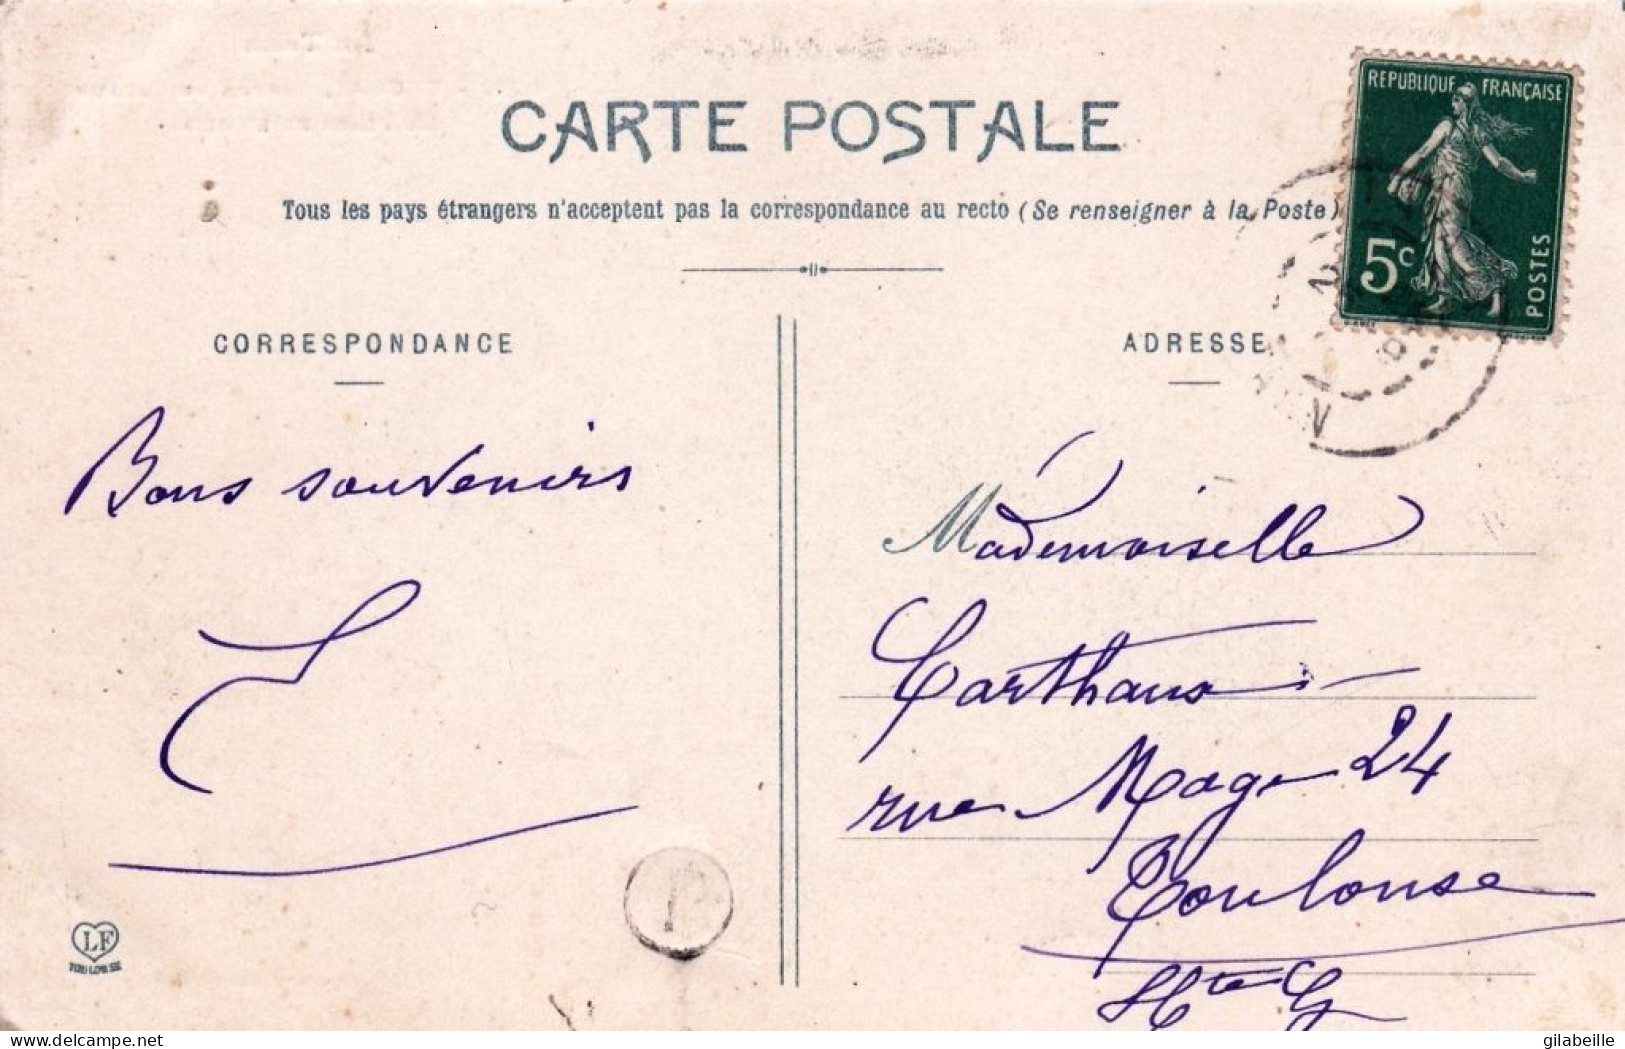 CARTE POSTALE
Tous les pays étrangers n'acceptent pas la correspondance au recto (Se renseigner à la Poste)
REPUBLIQUE FRANÇAISE
5c
POSTES
CORRESPONDANCE
Bons souvenirs
LF
TOULOUSE
ADRESSE
Mademoiselle
Carthaus
rue Mage 24
Toulouse
Hte G
www.delcampe.net
gilabeille